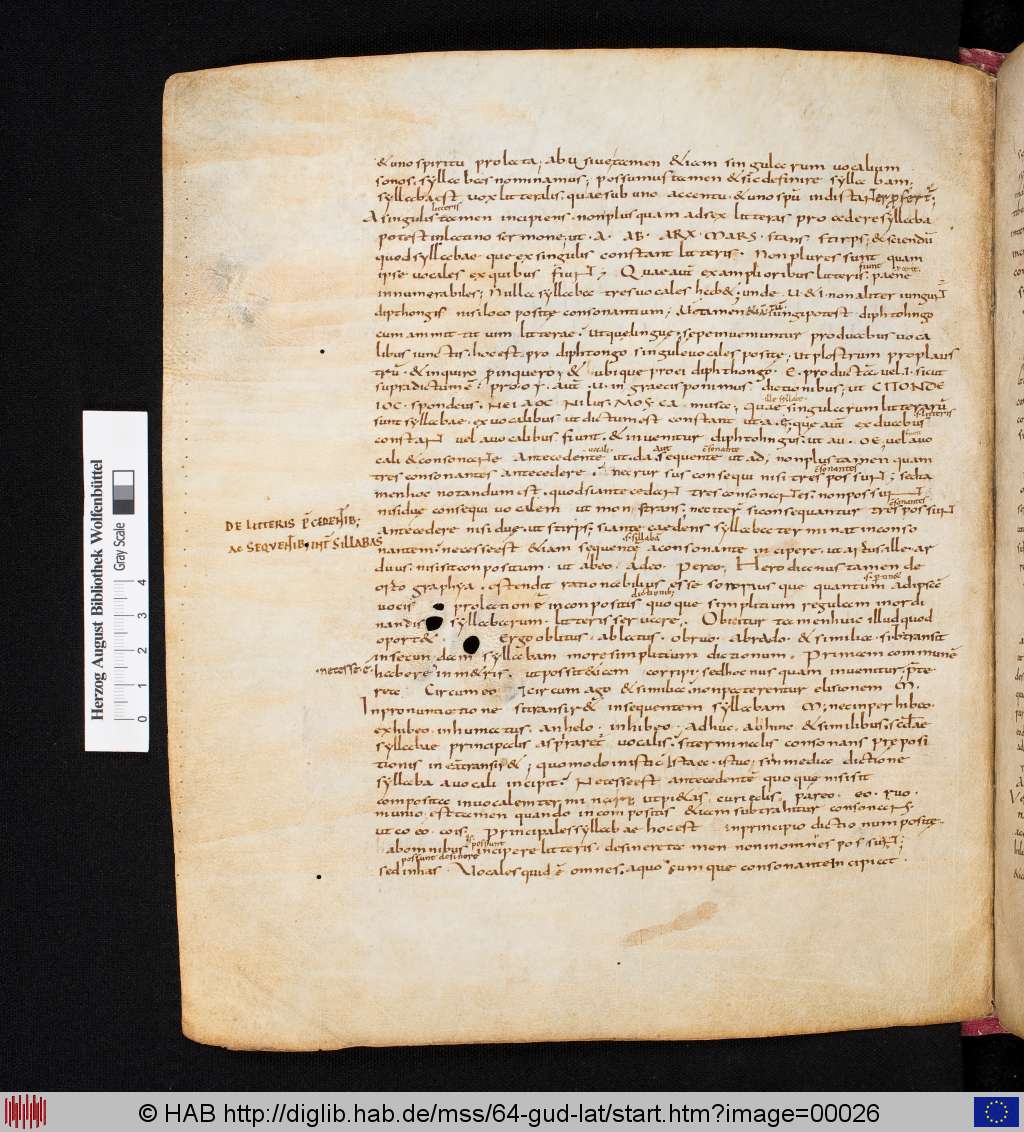 & uno spiritu prolata; abusive tamen & iam singularum vocalium
sonos syllabas nominamus; possumus tamen & sic definire syllabam;
syllaba est vox litteralis. quae sub uno accentu. & uno spu indistanter
A singulis tamen incipiens. non plus quam ad sex litteras procedere syllaba
litteris
potest in latino sermone; ut. A. AB. ARX. MARS. stans stirps; & sciendu
quod syllabae que ex singulis constant litteris. Non plures sunt quam
ipse vocales ex quibus fiunt; Quae aut ex amplioribus litteris. paene
fiunt
innumerabiles; Nulla syllaba tres vocales hab&; unde u & i non aliter iungunt
dipthongis nisi loco posite consonantium; Nec tamen
iungi potest diphthongo
cum ammittit vim litterae; Utque lingue; sepe inveniuntur productibus voca
libus iunctis. hoc est pro diphtongo singule vocales posite; ut plostrum pro plaus
tru. & inquiro p inquero; & ubique pro ei diphthongo. E. producta vel. I. sicut
supradictum e; pro o y. aut. u. in graecis ponimus dictionibus; ut
spondeus. Nilus. musa; Quae singularum litteraru
sunt syllabae. ex vocalibus ut dictum est constant ut. a. e; que aut ex duabus
litteris
constant vel a vocalibus fiunt. & invenitur diphthongus. ut au. oe. vel a vo
cali & consonante antecedente ut. da. sequente ut ad; non plus tamen quam
tres consonantes antecedere. nec rursus consequi nisi tres possunt; sed ta
men hoc notandum est. quod si antecedant tres consonantes; non possunt
nisi due consequi vocalem ut monstrans; nec iter si consequantur tres possunt
DE LITTERIS PCEDENTIB;
AC SEQUENTIB; INT SILLABAS
antecedere nisi due. ut stirps; si antecedens syllaba terminat in conso
nantem; necesse est & iam sequente a consonante incipere. ut artus. ille. ar
duus. nisi sit conpositum. ut abeo. adeo. pereo; Herodianus tamen de
ortographya. ostendit rationabilius esse sonorius que quantum ad ipsa
vocis prolatione in conpositis quoque simplitium regulam in ordi
nandis syllabarum litteris servare. Obicitur tamen huic illud quod
oport&. Ergo oblitus. ablatus. obruo. abrado. & similia. subtransit
in secundam syllabam more simplicium dictionum. Primam commune
necesse e
habere in m&ris. ut possit & iam corripi. sed hoc nusquam invenitur; prete
rea; Circumeo. circumago & similia. non paterentur elisionem M.
In pronuntiatione si transir& in sequentem syllabam M; nec in perhibeo.
exhibeo. inhumatus. anhelo. inhibeo. adhuc. abhinc & similibus. scdae
syllabae principalis aspirar&ur vocalis. si terminalis consonans preposi
tionis in ea transir&; quomodo in istic. istac. istuc; si in media dictione
syllaba a vocali incipit. Necesse est antecedente quoque nisi sit
composita in vocalem terminari ut pi&as. curialis. pareo. eo. ruo.
munio. est tamen quando in compositis & iam subtrahitur consonans.
ut coeo. cois. Principales syllabae hoc est in principio dictionum posite.
ab omnibus incipere litteris. desinere tamen non in omnes possunt;
possunt
possunt desinere
sed in has. Vocales quid e omnes. a quocumque consonante incipiat.
Herzog August Bibliothek Wolfenbüttel
Gray Scale
0 1 2 3 4
© HAB http://diglib.hab.de/mss/64-gud-lat/start.htm?image=00026